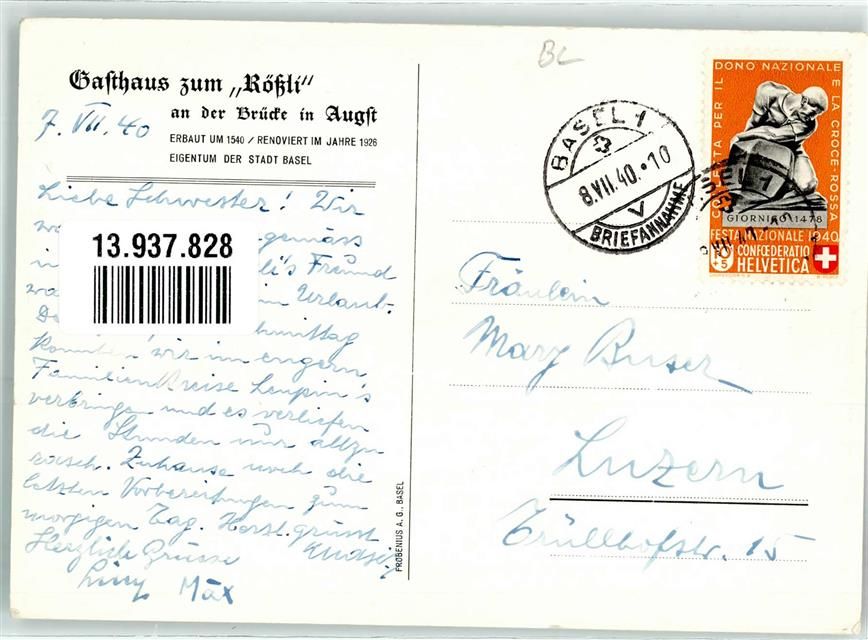 BL
Gasthaus zum „Rößli"
an der Brücke in Augst
ERBAUT UM 1540 / RENOVIERT IM JAHRE 1926
EIGENTUM DER STADT BASEL
7. VII. 40
Liebe Schwester! Wir
gemäss
Freund
Urlaub.
13.937.828
konnten wir im engern
Familienkreise Leupin's
verbringen und es verliefen
die Stunden nur allzu
rasch. Zuhause noch die
letzten Vorbereitungen zum
morgigen Tag. Herzl. grüsst
Herzliche Grüsse
Max
FROBENIUS A. G., BASEL
BASEL 1
8.VII.40.-10
V
BRIEFANNAHME
COPERTA PER IL DONO NAZIONALE E LA CROCE-ROSSA
GIORNICO 1478
FESTA NAZIONALE 1940
CONFŒDERATIO
HELVETICA
Fräulein
Mary Buser
Luzern
Trüllhofstr. 15